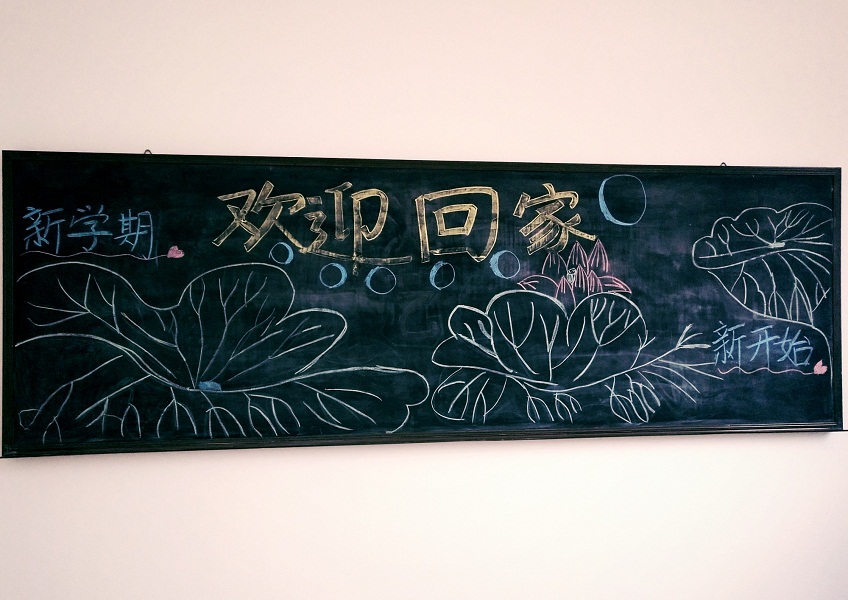 新学期
欢迎回家
新开始